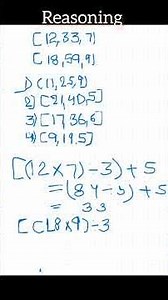 Reasoning
[12,33,7]
[18,59,9]
1) (11,25,9)
2) [21,40,5]
3) [17,36,6]
4) [9,19,5]
[(12×7)-3)+5
=(84-3)+5
= 33
[(18×9)-3